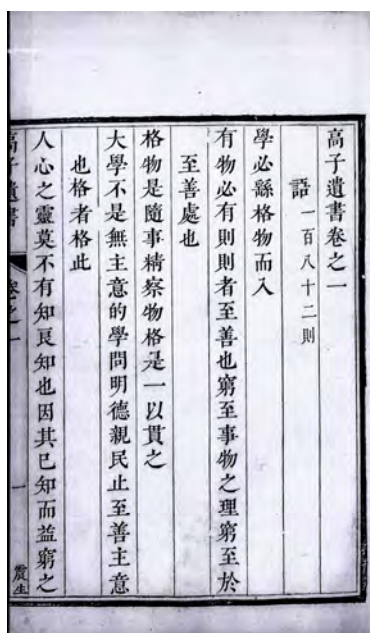 高子遺書卷之一
語一百八十二則
學必繇格物而入
有物必有則則者至善也窮至事物之理窮至於
至善處也
格物是隨事精察物格是一以貫之
大學不是無主意的學問明德親民止至善主意
也格者格此
人心之靈莫不有知良知也因其已知而益窮之
高子遺書 卷之一 一